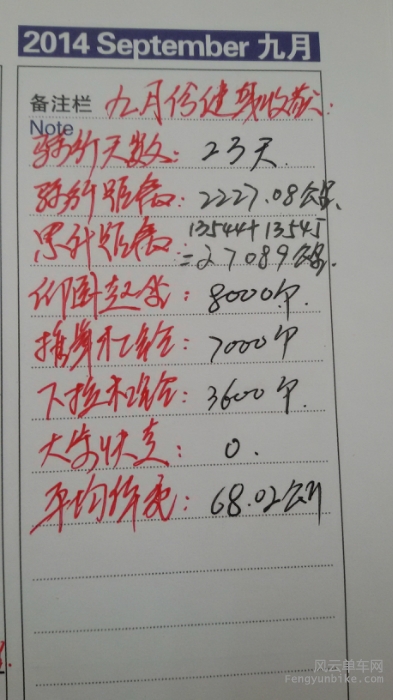 2014 September 九月
备注栏 九月份健身收获:
Note
骑行天数: 23天.
骑行距离: 2227.08公里.
累计距离: 13544+13545
=27089公里.
仰卧起坐: 8000个.
推举杠铃: 7000个
下拉杠铃: 3600个.
大步快走: 0.
平均信度: 68.02公里
风云单车网
Fengyunbike.com